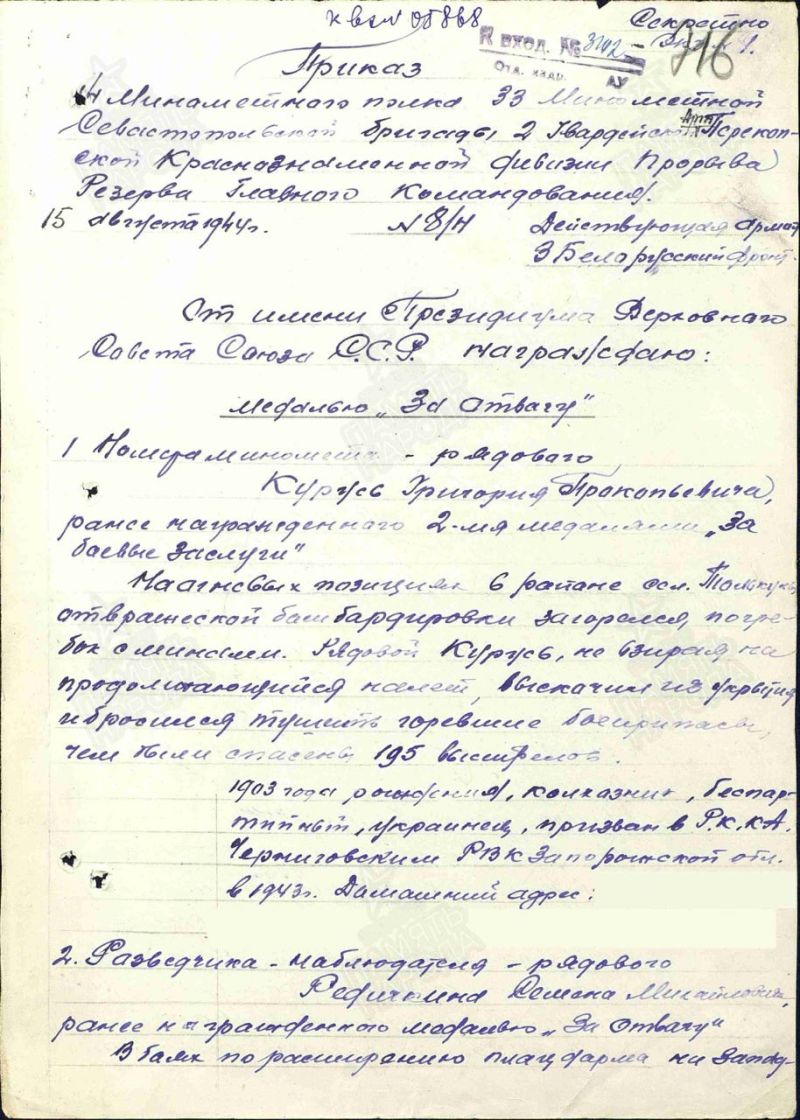 к вх № 05868
Секретно
Экз. № 1.
К ВХОД. № 3202
716
Приказ
14 Минометного полка 33 Минометной
Севастопольской бригады 2 Гвардейской Арт. Перекоп-
ской Краснознаменной дивизии Прорыва
Резерва Главного Командования.
15 августа 1944г. N 8/Н Действующая армия
3 Белорусский фронт.
От имени Президиума Верховного
Совета Союза С.С.Р. награждаю:
Медалью „За Отвагу"
1 Номера миномета - рядового
Кургусь Григория Прокопьевича,
ранее награжденного 2-мя медалями „За
боевые заслуги"
На огневых позициях в районе осл.
от вражеской бомбардировки загорелся погре-
бок с минами. Рядовой Кургусь, не взирая на
продолжающийся налет, выскочил из укрытия
и бросился тушить горевшие боеприпасы,
чем были спасены 195 выстрелов.
1903 года рождения, колхозник, беспар-
тийный, украинец, призван в Р.К.К.А.
Черниговским РВК Запорожской обл.
в 1943г. Домашний адрес:
2. Разведчика - наблюдателя - рядового
Редичкина Семена Михайловича,
ранее награжденного медалью „За Отвагу"
В боях по расширению плацдарма на запад-